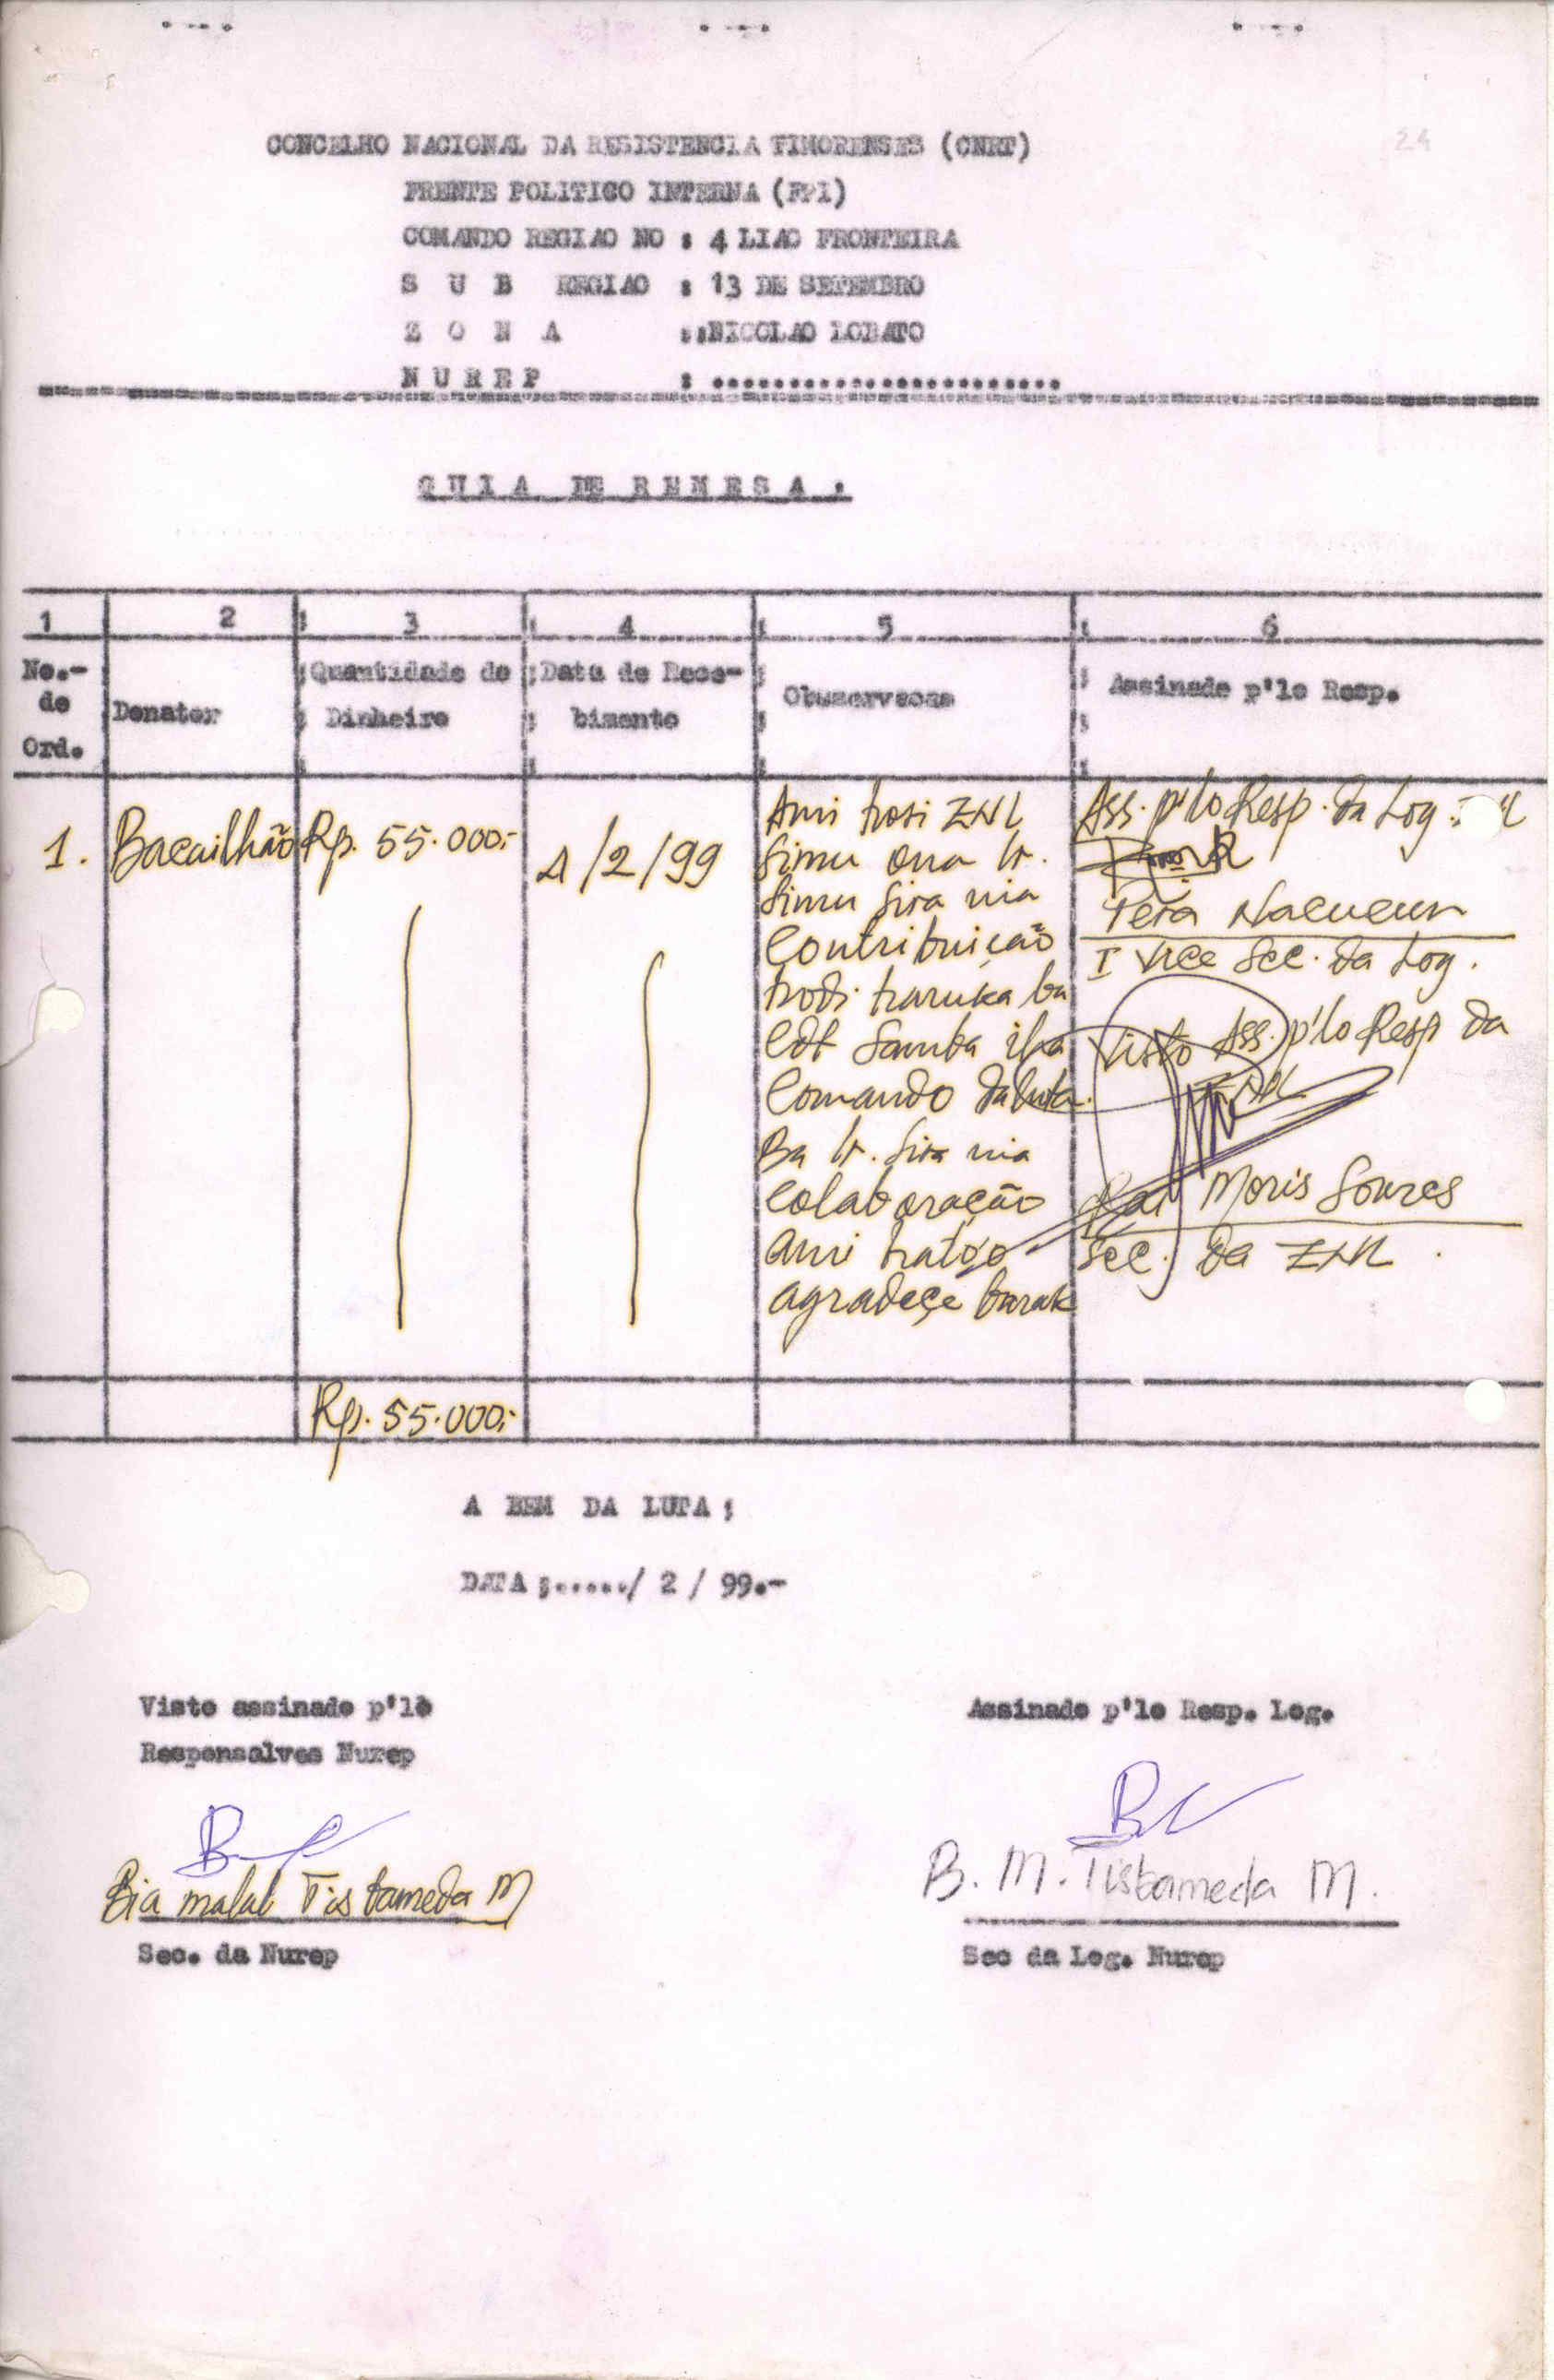 24
CONCELHO NACIONAL DA RESISTENCIA TIMORENSES (CNRT)
FRENTE POLITICO INTERNA (FPI)
COMANDO REGIAO NO : 4 LIAO FRONTEIRA
S U B REGIAO : 13 DE SETEMBRO
Z O N A ::NICOLAO LOBATO
N U R E P : .........................
G U I A DE R E M E S A :
1 2 3 4 5 6
No.- de Ord.
Donator
Quantidade de Dinheiro
Data de Rece- bimento
Observacoes
Assinado p'lo Resp.
1. Bacailhão Rp. 55.000:- 1/2/99
Ami hosi ZNL
simu ona lt.
simu sira nia
Contribuição
hodi haruka ba
Cdt Samba iha
Comando da luta.
Ba lt. sira nia
colaboração
ami hato'o
agradeçe barak
Ass. p'lo Resp. da Log.
I Vice Sec. da Log.
Visto Ass. p'lo Resp da
ZNL
Moris Soares
Sec. da ZNL.
Rp. 55.000:-
A BEM DA LUTA ;
DATA ;....../ 2 / 99.-
Visto assinado p'lo
Responsalves Nurep
Bia malul Tistameda M
Sec. da Nurep
Assinado p'lo Resp. Log.
B. M. Tistameda M.
Sec da Log. Nurep